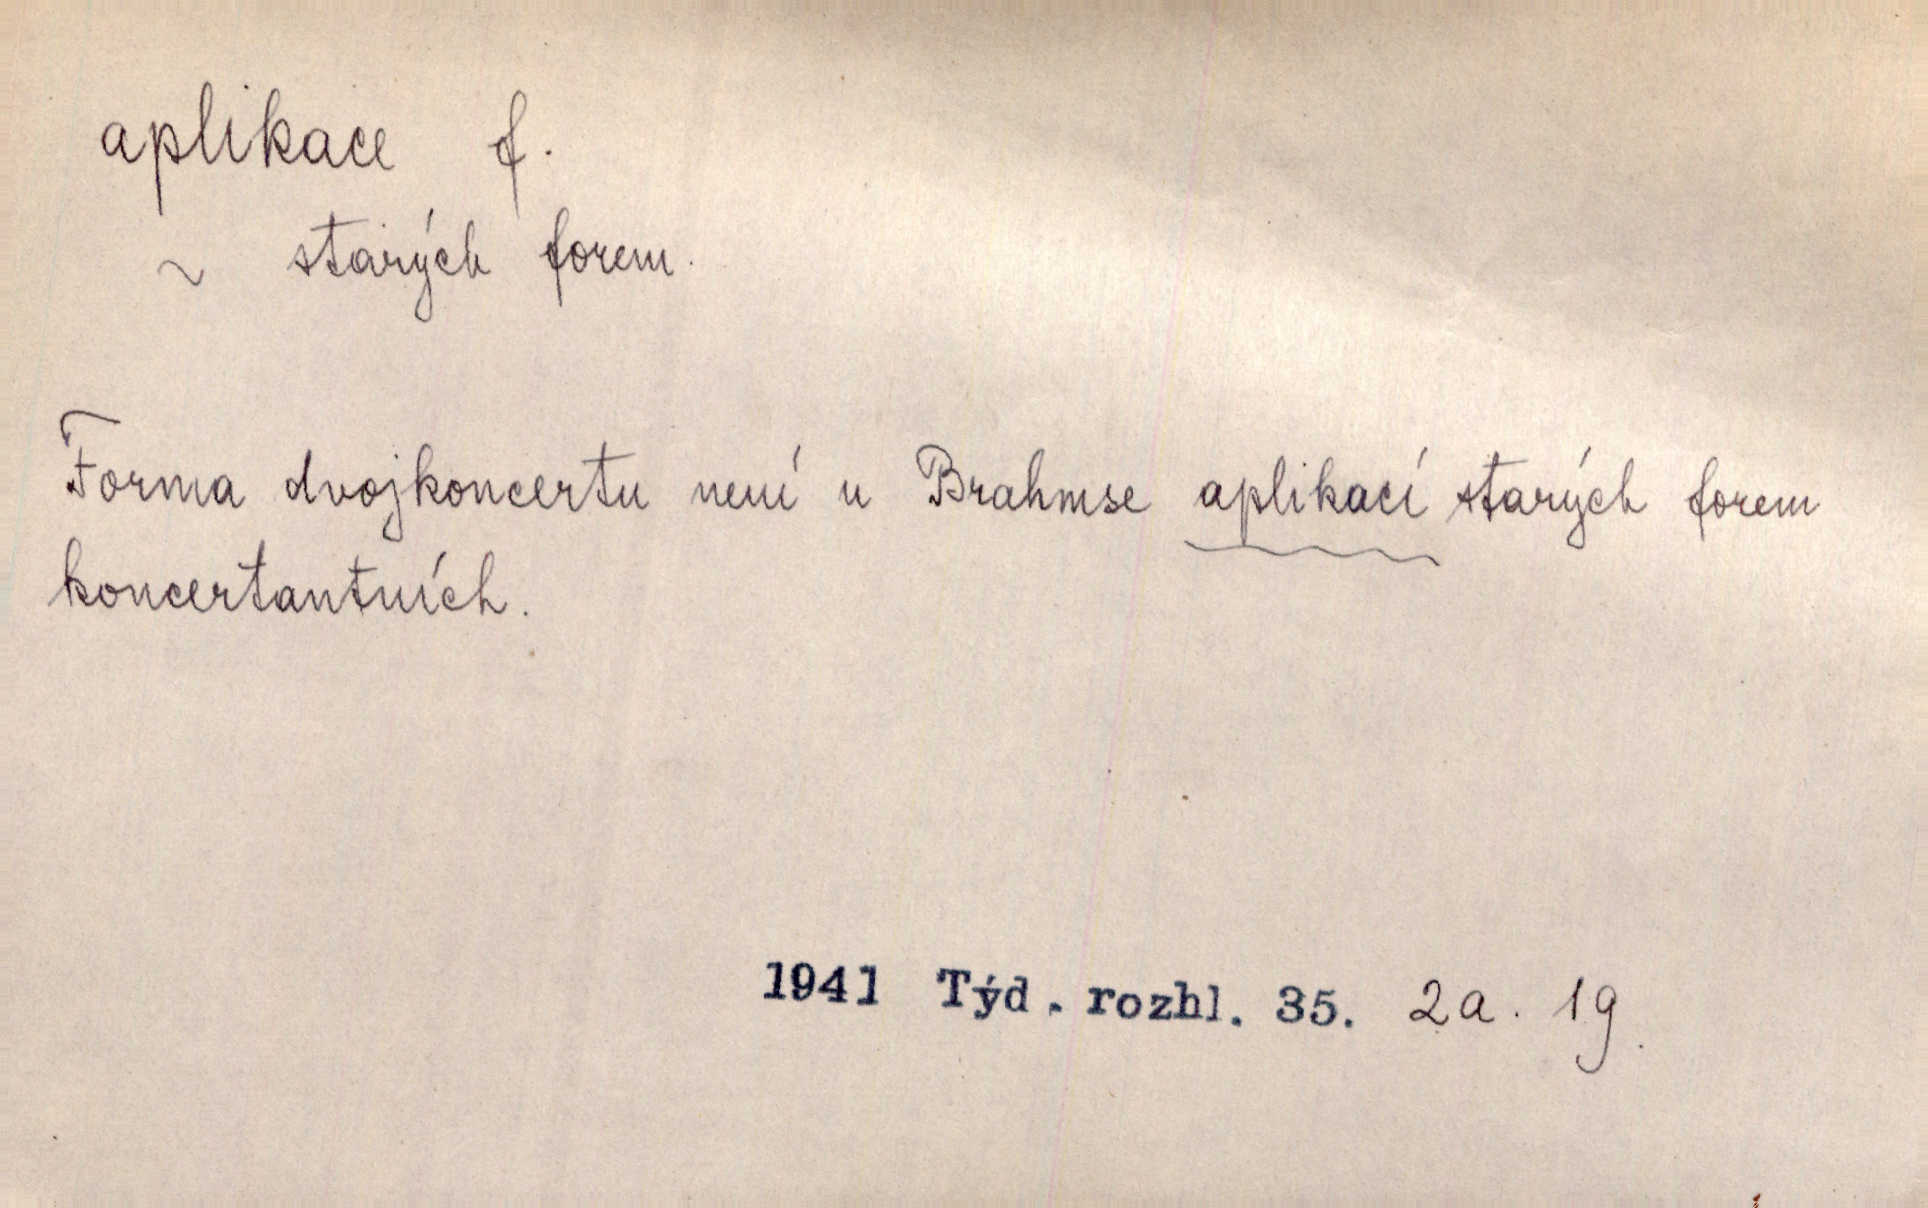 aplikace f.
~ starých forem.
Forma dvojkoncertu není u Brahmse aplikací starých forem
koncertantních.
1941 Týd. rozhl. 35. 2a. 19.